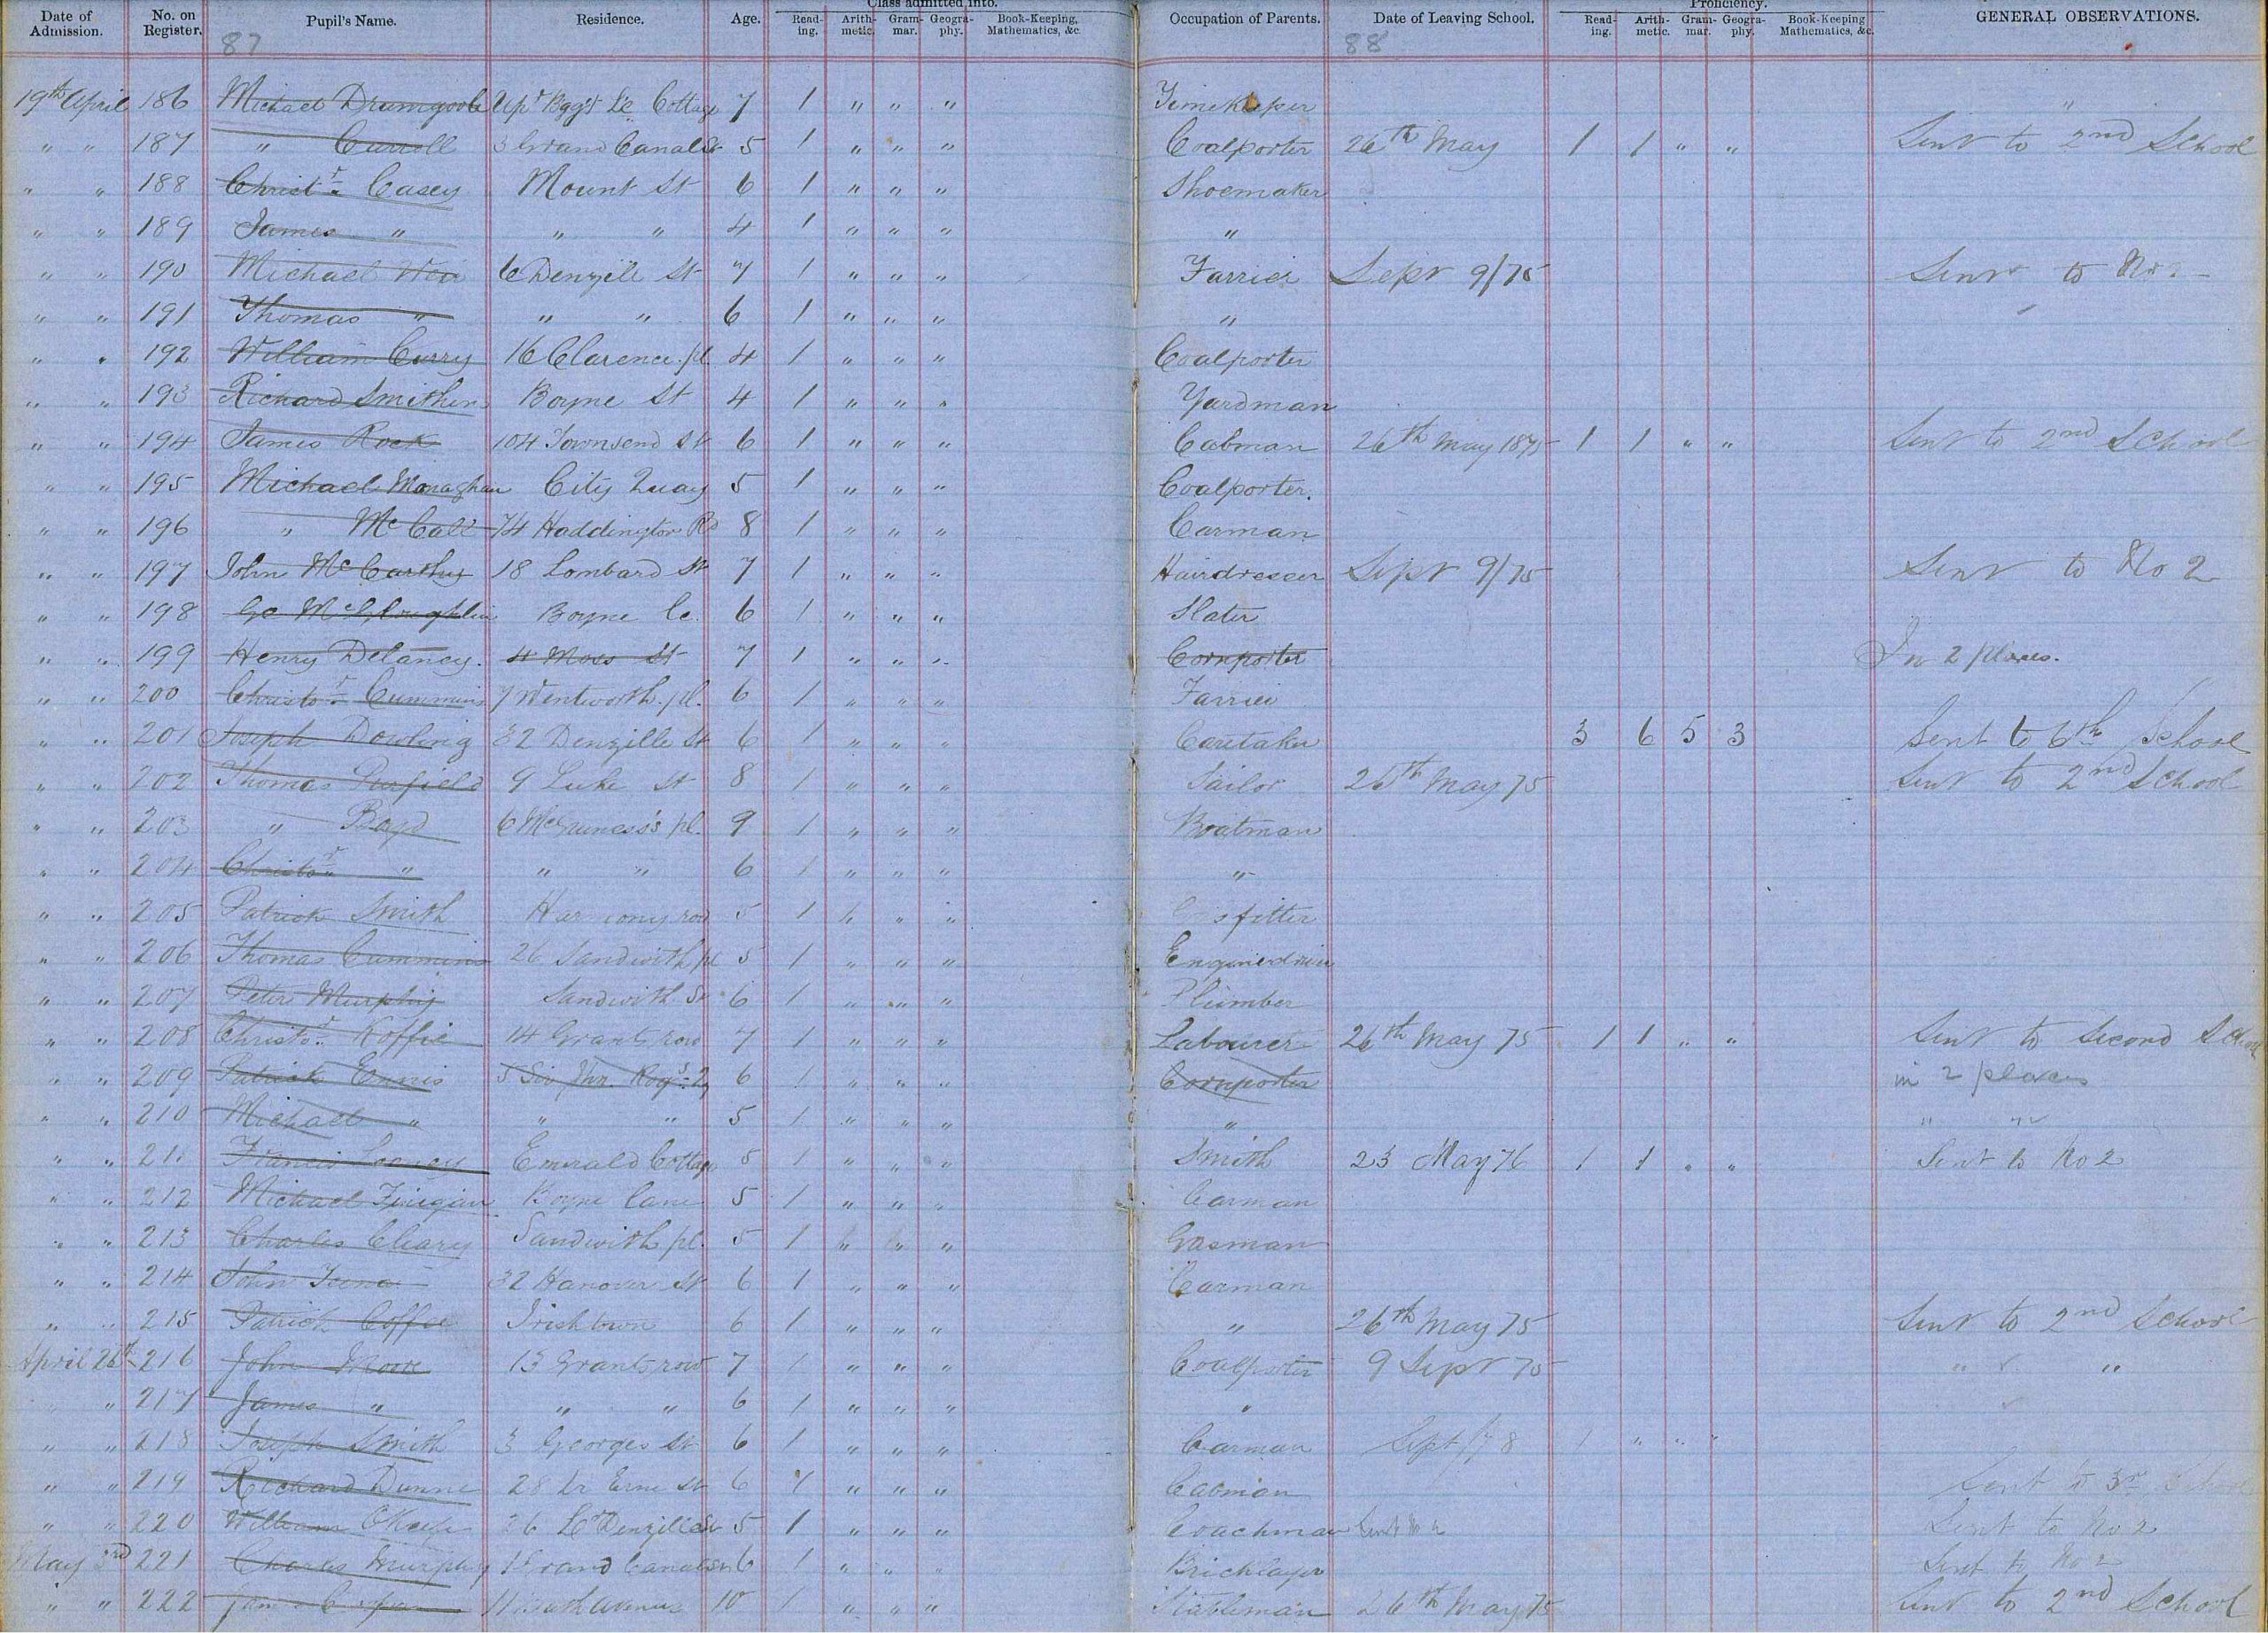 Class admitted into. Proficiency.
Date of Admission. No. on Register. Pupil's Name. Residence. Age. Read-ing. Arith-metic. Gram-mar. Geogra-phy. Book-Keeping, Mathematics, &c. Occupation of Parents. Date of Leaving School. Read-ing. Arith-metic. Gram-mar. Geogra-phy. Book-Keeping Mathematics, &c. GENERAL OBSERVATIONS.
87 88
19th April 186 Michael Drumgoole Upr Bagg't Le Cottage 7 1 " " " Timekeeper "
" " 187 " Curroll 3 Grand Canal St 5 1 " " " Coalporter 26th May 1 1 " " Sent to 2nd School
" " 188 Christr Casey Mount St 6 1 " " " Shoemaker
" " 189 James " " " 4 1 " " " "
" " 190 Michael Weir 6 Denzille St 7 1 " " " Farrier Sept 9/75 Sent to No 2
" " 191 Thomas " " " 6 1 " " " "
" " 192 William Curry 16 Clarence pl. 4 1 " " " Coalporter
" " 193 Richard Smithers Boyne St 4 1 " " " Yardman
" " 194 James Rock 104 Townsend St 6 1 " " " Cabman 26th May 1875 1 1 " " Sent to 2nd School
" " 195 Michael Monaghan City Quay 5 1 " " " Coalporter.
" " 196 " McCall 74 Haddington Rd 8 1 " " " Carman
" " 197 John McCarthy 18 Lombard St 7 1 " " " Hairdresser Sept 9/75 Sent to No 2
" " 198 Ge McGloughlin Boyne Le. 6 1 " " " Slater
" " 199 Henry Delaney. 4 Moss St 7 1 " " " Cornporter In 2 places.
" " 200 Christor Cummins 7 Wentworth pl. 6 1 " " " Farrier
" " 201 Joseph Dowling 32 Denzille St 6 1 " " " Caretaker 3 6 5 3 Sent to 6th School
" " 202 Thomas Purfield 9 Luke St 8 1 " " " Tailor 26th May 75 Sent to 2nd School
" " 203 " Boyd 6 McGuiness's pl. 9 1 " " " Boatman
" " 204 Christor " " " 6 1 " " " "
" " 205 Patrick Smith Harmony row 5 1 " " " Gasfitter
" " 206 Thomas Cummins 26 Sandwith pl 5 1 " " " Enginedriver
" " 207 Peter Murphy Sandwith St 6 1 " " " Plumber
" " 208 Christor Koffie 14 Grants row 7 1 " " " Labourer 26th May 75 1 1 " " Sent to Second School
" " 209 Patrick Ennis 5 Sir Jhn. Rog's Qy 6 1 " " " Cornporter in 2 places
" " 210 Michael " " " 5 1 " " " " " "
" " 211 Francis Looney Emerald Cottage 5 1 " " " Smith 23 May 76 1 1 " " Sent to No 2
" " 212 Michael Finegan Boyne Lane 5 1 " " " Carman
" " 213 Charles Cleary Sandwith pl. 5 1 " " " Gasman
" " 214 John 32 Hanover St 6 1 " " " Carman
" " 215 Patrick Coffee Irishtown 6 1 " " " " 26th May 75 Sent to 2nd School
April 26th 216 John Moore 13 Grants row 7 1 " " " Coalporter 9 Sept 75 " " "
" 217 James " " " 6 1 " " " "
" " 218 Joseph Smith 3 Georges St 6 1 " " " Carman Sept /78 1 " " "
" " 219 Richard Dunne 28 Lr Erne St 6 1 " " " Cabman Sent to 3rd School
" " 220 William O'Keefe 26 Lr Denzille St 5 1 " " " Coachman Sent No 2 Sent to No 2
May 3rd 221 Charles Murphy 1 Grand Canal St 6 1 " " " Bricklayer Sent to No 2
" " 222 10 1 " " " Stableman 26th May 75 Sent to 2nd School